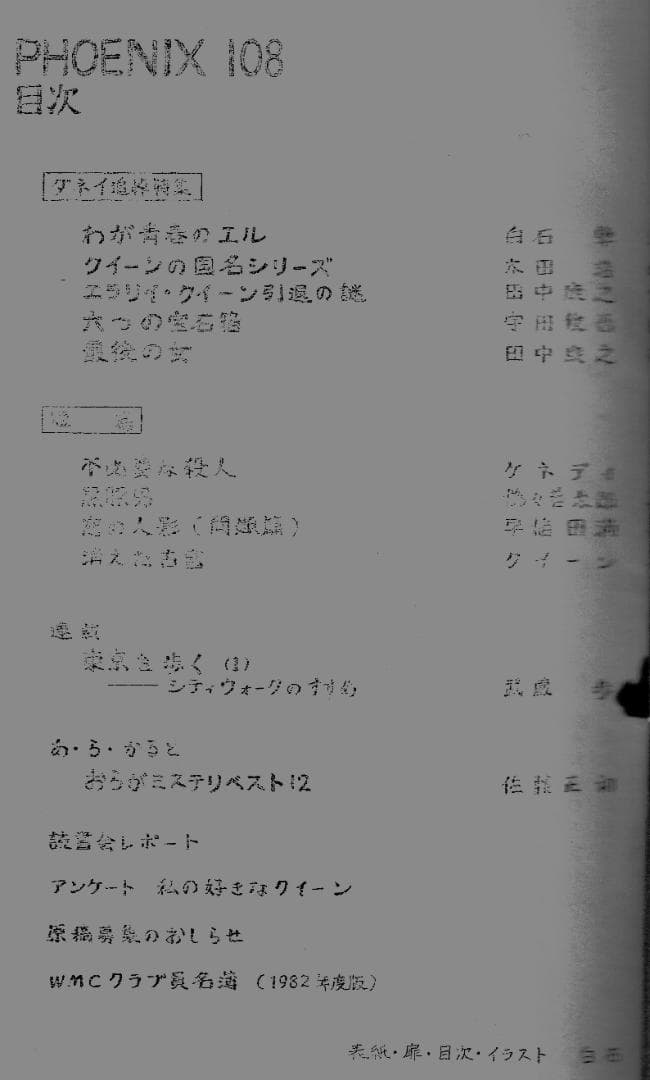 PHOENIX 108
目次
追悼特集
わが青春のエル 白石
クイーンの国名シリーズ 田
エラリイ・クイーン引退の謎 田中 之
六つの宝石箱 宇田
最後の女 田中 之
不必要な殺人 ケネディ
窓の人影(問題篇)
消えた古書 クイーン
連載
東京を歩く (1)
―― シティウォークのすすめ 武蔵 歩
あ・ら・かると
おらがミステリベスト12 佐 正
読書会レポート
アンケート 私の好きなクイーン
原稿募集のおしらせ
WMCクラブ員名簿 (1982年度版)
表紙・扉・目次・イラスト 白石